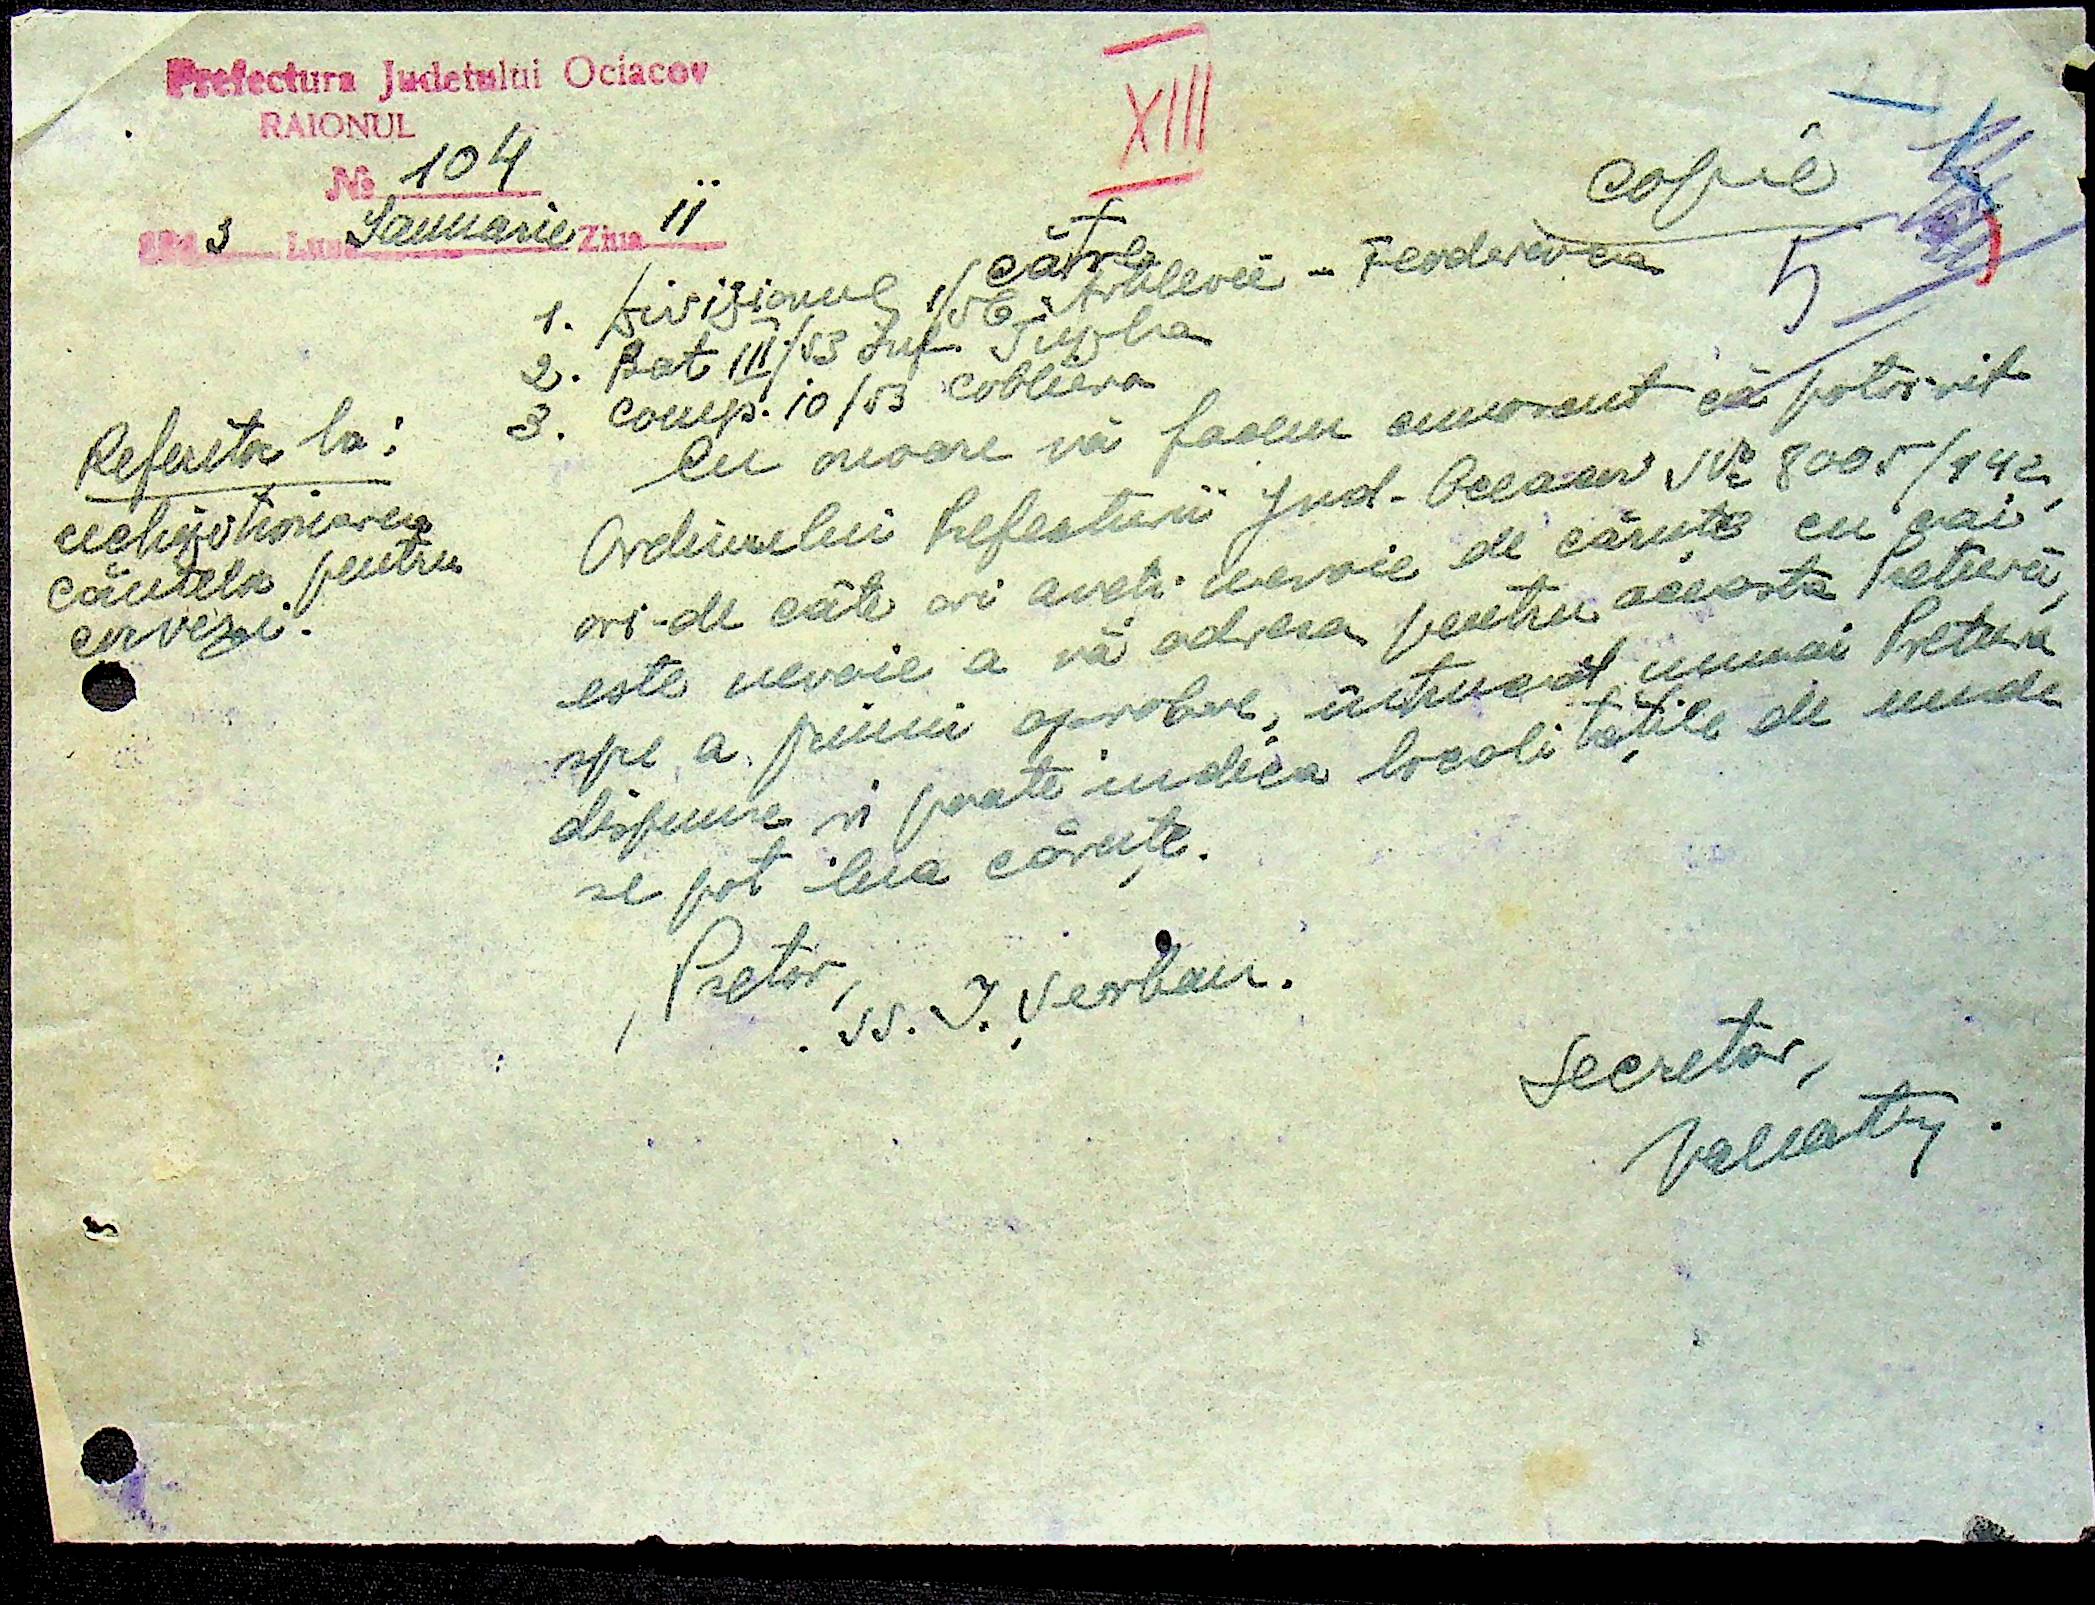 Prefectura Judetului Ociacov
RAIONUL
XIII
№ 104
3 Luna Ianuarie Ziua 11
Copie
5
Către
1. Divizionul 1/56 Artilerie - Feoderovca
2. Bat III/53 Inf.
3. Comp. 10/53 Coblieva
Referitor la:
rechiziționarea
pentru
corvezi.
Cu onoare vă facem cunoscut că potrivit
Ordinului Prefecturii Jud. Oceacov № 8005/942,
ori-de câte ori aveți nevoie de căruțe cu cai,
este nevoie a vă adresa pentru aceasta Preturii,
spre a primi aprobare, întrucât numai Pretura
dispune și poate indica localitățile de unde
se pot lua căruțe.
Pretor,
ss. I. Șerban.
Secretar,